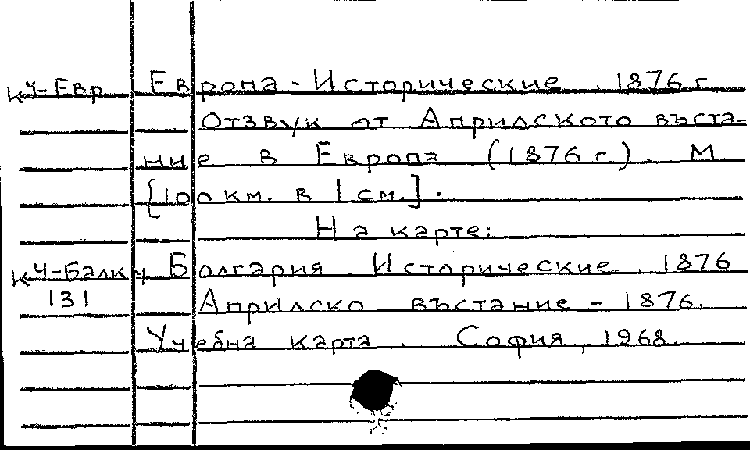 К4-Евр Европа - Исторические. 1876 г.
Отзвук от Априлского въста-
ние в Европа (1876 г.). М
[100 км. в 1 см.].
На карте:
К4-Балк Болгария. Исторические. 1876
131 Априлско въстание - 1876.
Учебна карта. София, 1968.